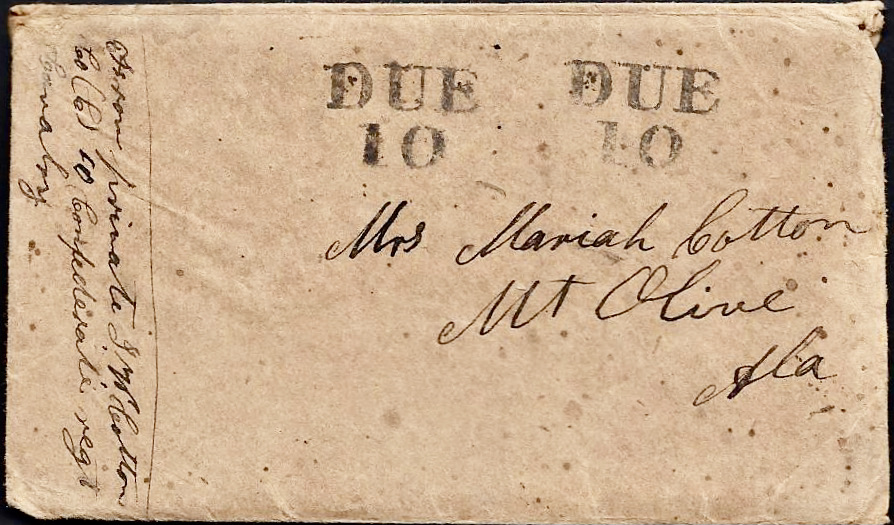 DUE DUE
10 10
Mrs Mariah Cotton
Mt Olive
Ala
From private J W Cotton
Co (C) 10 Confederate regt
Cavalry